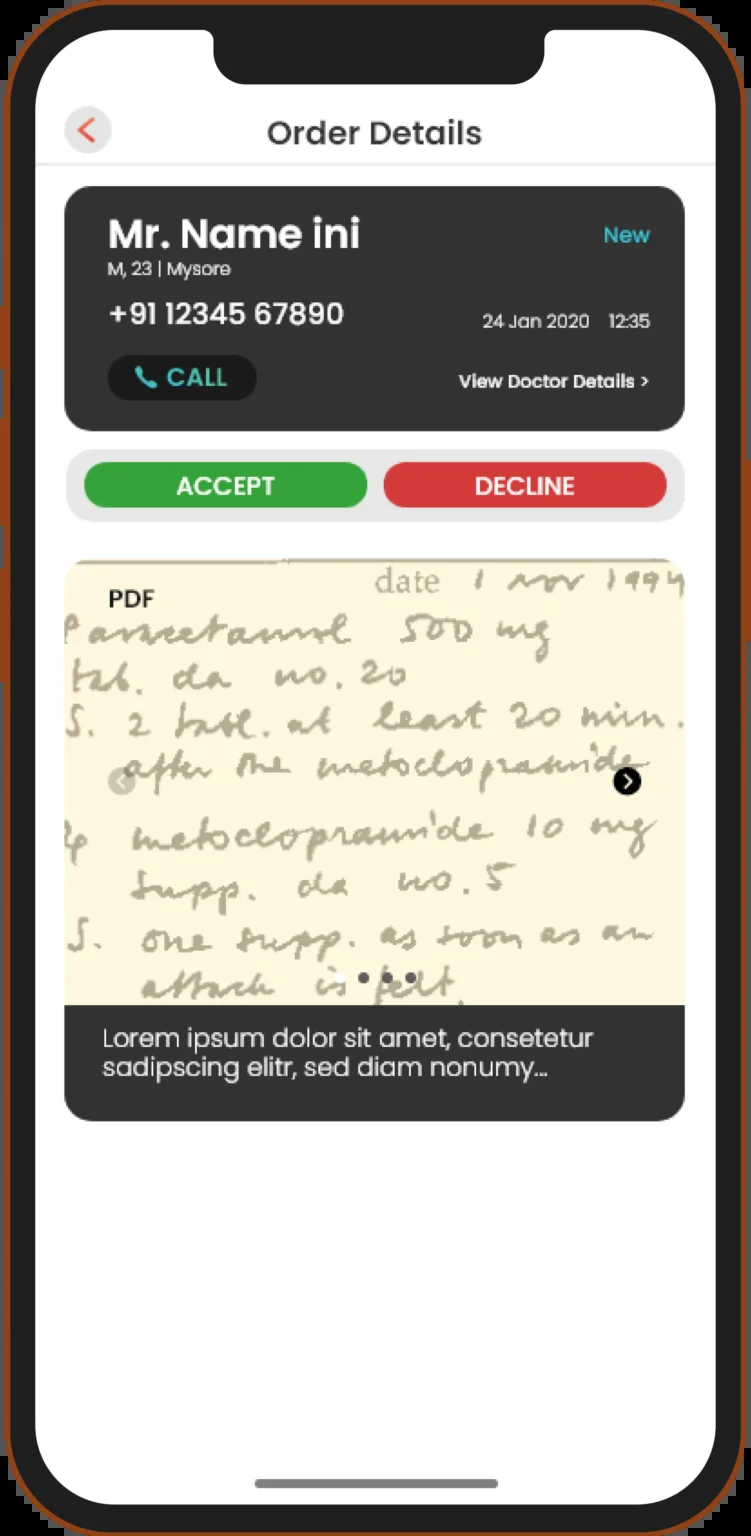 Order Details
Mr. Name ini
New
M, 23 | Mysore
+91 12345 67890
24 Jan 2020 12:35
CALL
View Doctor Details >
ACCEPT
DECLINE
date 1 nov 1994
PDF
Paracetamol 500 mg
tab. da no. 20
S. 2 tabl. at least 20 min.
after the metoclopramide
metoclopramide 10 mg
supp. da no. 5
S. one supp. as soon as an
attack is felt.
Lorem ipsum dolor sit amet, consetetur
sadipscing elitr, sed diam nonumy...